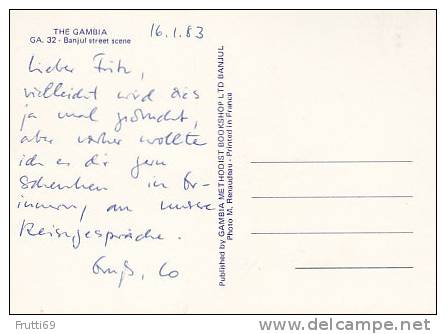 THE GAMBIA
GA. 32 - Banjul street scene
16.1.83
Lieber Fritz,
vielleicht wird dies
ja mal gebraucht,
aber vorher wollte
ich es dir gern
schenken in Er-
innerung an unsere
Reisegespräche.
Gruß,
Published by GAMBIA METHODIST BOOKSHOP LTD BANJUL
Photo M. Renaudeau - Printed in France
Frutti69
www.delcampe.net